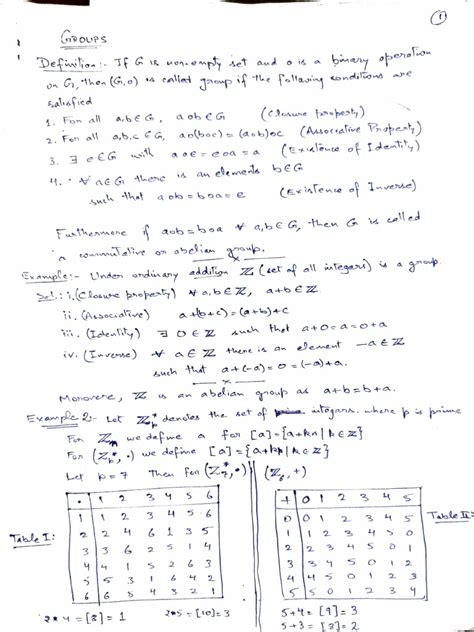 1
GROUPS
Definition:- If G is non-empty set and o is a binary operation
on G, then (G,o) is called group if the following conditions are
satisfied
1. For all a,b∈G, aob∈G (Closure property)
2. For all a,b,c∈G, ao(boc)=(aob)oc (Associative Property)
3. ∃ e∈G with aoe=eoa=a (Existence of Identity)
4. ∀ a∈G there is an elements b∈G
such that aob=boa=e (Existence of Inverse)
Furthermore if aob=boa ∀ a,b∈G, then G is called
a commutative or abelian group.
Example:- Under ordinary addition ℤ (set of all integers) is a group.
Sol.: i. (Closure property) ∀ a,b∈ℤ, a+b∈ℤ
ii. (Associative) a+(b+c)=(a+b)+c
iii. (Identity) ∃ 0∈ℤ such that a+0=a=0+a
iv. (Inverse) ∀ a∈ℤ there is an element -a∈ℤ
such that a+(-a)=0=(-a)+a.
Moreover, ℤ is an abelian group as a+b=b+a.
Example 2:- Let ℤ*p denotes the set of integers. where p is prime
For ℤn we define a for [a]={a+kn|k∈ℤ}
For (ℤ*p, ·) we define [a]={a+kp|k∈ℤ}
Let p=7 Then for (ℤ*7, ·) (ℤ6, +)
Table I:
· 1 2 3 4 5 6
1 1 2 3 4 5 6
2 2 4 6 1 3 5
3 3 6 2 5 1 4
4 4 1 5 2 6 3
5 5 3 1 6 4 2
6 6 5 4 3 2 1
2*4=[8]=1 2*5=[10]=3
Table II:
+ 0 1 2 3 4 5
0 0 1 2 3 4 5
1 1 2 3 4 5 0
2 2 3 4 5 0 1
3 3 4 5 0 1 2
4 4 5 0 1 2 3
5 5 0 1 2 3 4
5+4=[9]=3
5+3=[8]=2